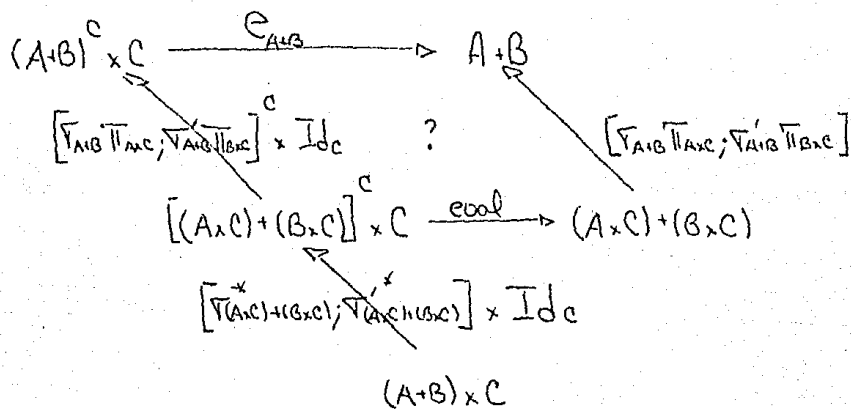 e_{A+B}
(A+B)^C × C → A+B
[∇_{A+B} π_{A×C}; ∇'_{A+B} π_{B×C}]^C × Id_C ? [∇_{A+B} π_{A×C}; ∇'_{A+B} π_{B×C}]
[(A×C)+(B×C)]^C × C eval → (A×C)+(B×C)
[∇*_{(A×C)+(B×C)}; ∇'*_{(A×C)+(B×C)}] × Id_C
(A+B) × C